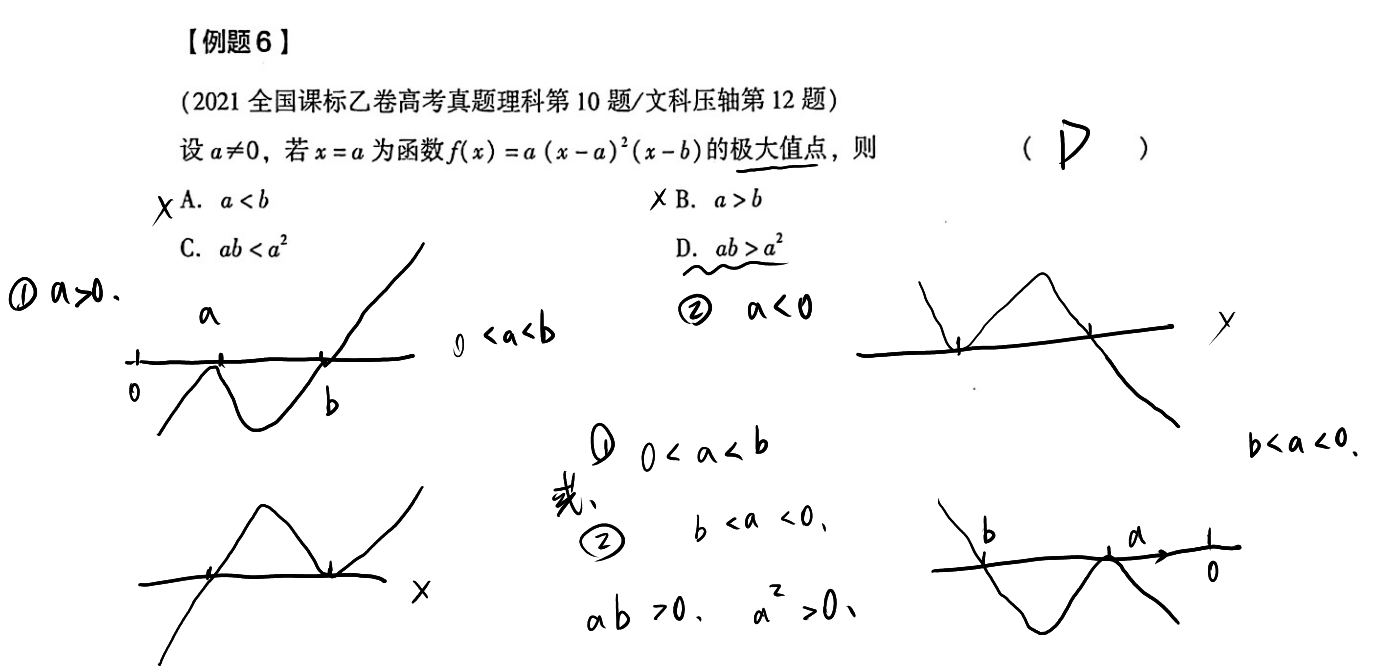 【例题6】
(2021 全国课标乙卷高考真题理科第 10 题/文科压轴第 12 题)
设 a≠0，若 x=a 为函数 f(x)=a(x-a)²(x-b)的极大值点，则 ( D )
× A. a<b × B. a>b
C. ab<a² D. ab>a²
① a>0.
a
0
b
0<a<b
② a<0
×
×
① 0<a<b
或、
② b<a<0,
ab>0. a²>0、
b<a<0.
b
a
0